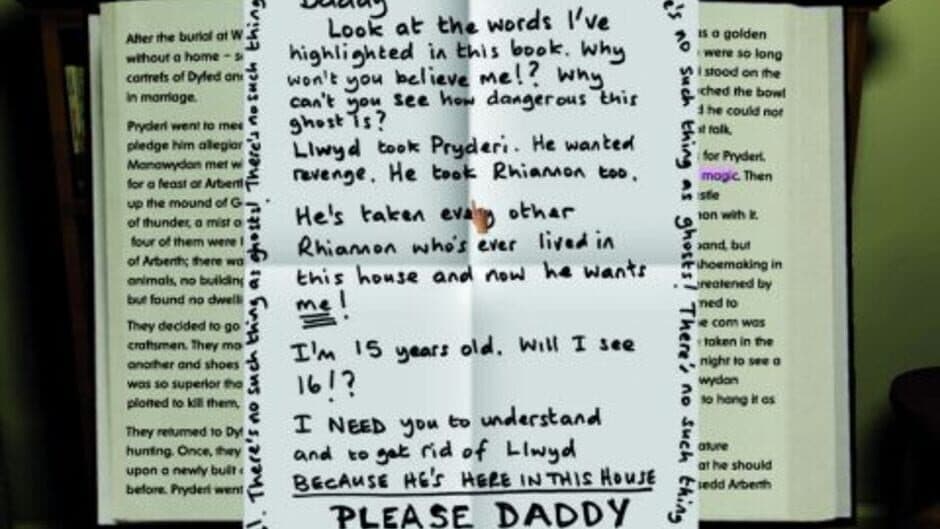 After the burial at W
without a home – s
cantrefs of Dyfed and
in marriage.
Pryderi went to mee
pledge him allegian
Manawydan met wi
for a feast at Arberth
up the mound of G
of thunder, a mist a
four of them were l
of Arberth; there wa
animals, no building
but found no dwelli
They decided to go
craftsmen. They ma
another and shoes
was so superior tha
plotted to kill them,
They returned to Dyf
hunting. Once, they
upon a newly built
before. Pryderi went
There's no such thing as ghosts! There's no such thing
Daddy
Look at the words I've
highlighted in this book. Why
won't you believe me!? Why
can't you see how dangerous this
ghost is?
Llwyd took Pryderi. He wanted
revenge. He took Rhiannon too.
He's taken every other
Rhiannon who's ever lived in
this house and now he wants
me!
I'm 15 years old. Will I see
16!?
I NEED you to understand
and to get rid of Llwyd
BECAUSE HE'S HERE IN THIS HOUSE
PLEASE DADDY
e's no such thing as ghosts! There's no such thing
as a golden
were so long
stood on the
ched the bowl
d he could not
t talk,
for Pryderi.
magic. Then
stle
non with it.
and, but
shoemaking in
reatened by
ned to
e corn was
taken in the
night to see a
wydan
to hang it as
ature
at he should
sedd Arberth